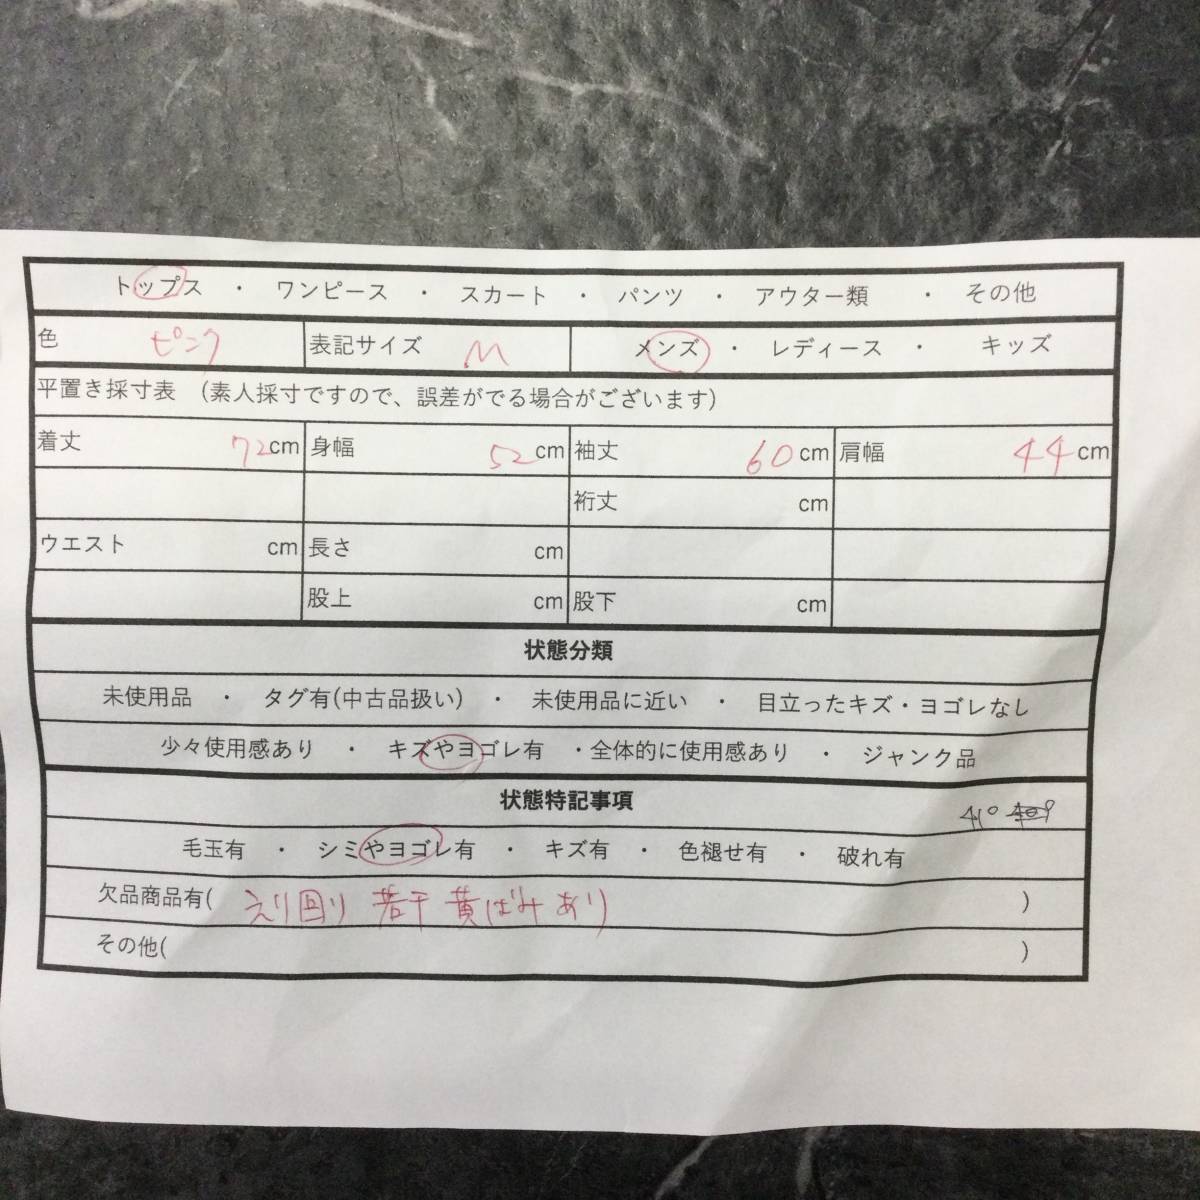 トップス ・ ワンピース ・ スカート ・ パンツ ・ アウター類 ・ その他
色 ピンク 表記サイズ M メンズ ・ レディース ・ キッズ
平置き採寸表 (素人採寸ですので、誤差がでる場合がございます)
着丈 72cm 身幅 52cm 袖丈 60cm 肩幅 44cm
裄丈 cm
ウエスト cm 長さ cm
股上 cm 股下 cm
状態分類
未使用品 ・ タグ有(中古品扱い) ・ 未使用品に近い ・ 目立ったキズ・ヨゴレなし
少々使用感あり ・ キズやヨゴレ有 ・全体的に使用感あり ・ ジャンク品
状態特記事項
毛玉有 ・ シミやヨゴレ有 ・ キズ有 ・ 色褪せ有 ・ 破れ有
欠品商品有( えり回り 若干 黄ばみあり )
その他( )